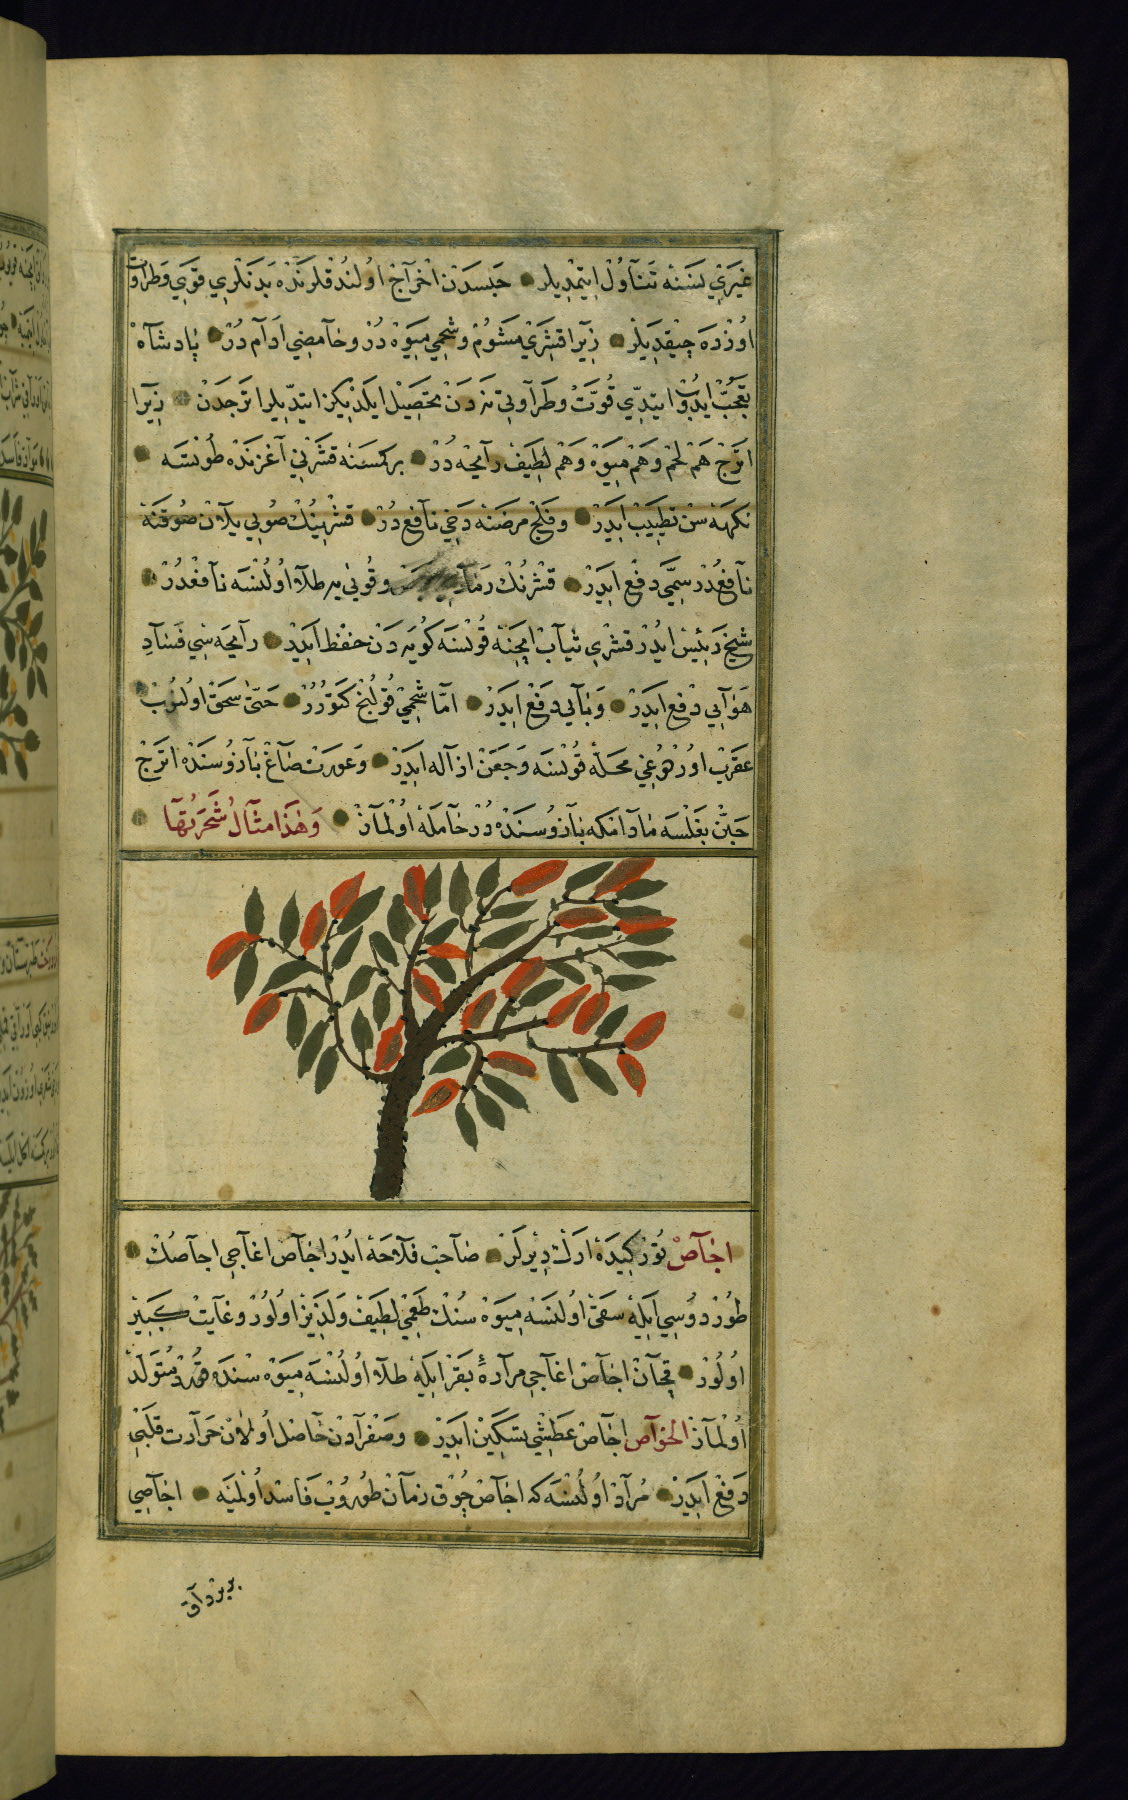 غيري نسنه تناول ايتمديلر حبسدن اخراج اولندقلرنده بدنلري قوي وطراوت
اوزره چيقديلر زيرا قشري مشموم وشحمي ميوه در وحامضي ادام در پادشاه
تعجب ايدوب ايتدي قوت وطراوتي نه دن تحصيل ايلدنيكز ايتديلر اترجدن زيرا
اترج هم لحم وهم ميوه وهم لطيف رايحه در بر كمسنه قشرني آغزنده طوتسه
نكهه سن تطييب ايدر وفلج مرضنه دخي نافع در قشرينك صويي يلان صوقنه
نافعدر سمي دفع ايدر قشرنك رمادي وقوي يه طلا اولنسه نافعدر
شيخ رئيس ايدر قشري ثياب ايچنه قونسه كويه دن حفظ ايدر رايحه سي فساد
هوايي دفع ايدر وبايي دفع ايدر اما شحمي قولنج كتورر حتى سحق اولنوب
عقرب اوردوغي محله قونسه وجعن ازاله ايدر وعورت صاغ بازوسنده اترج
حبن بغلسه مادامكه بازوسنده در حامله اولماز وهذا مثال شجرتها
اجاص توركيده ارك ديرلر صاحب فلاحه ايدر اجاص اغاجي اجاصك
طوردوسي ايله سقى اولنسه ميوه سنك طعمي لطيف ولذيذ اولور وغايت كبير
اولور قچان اجاص اغاجي مراره بقر ايله طلا اولنسه ميوه سنده قورد متولد
اولماز الخواص اجاص عطشي تسكين ايدر وصفرادن حاصل اولان حرارت قلبي
دفع ايدر مراد اولنسه كه اجاص چوق زمان طوروب فاسد اولميه اجاصي
بر بردآق